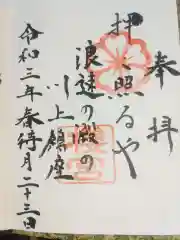 奉拝
押し照るや
浪速の澱の
川上鎮座
令和三年春待月二十三日